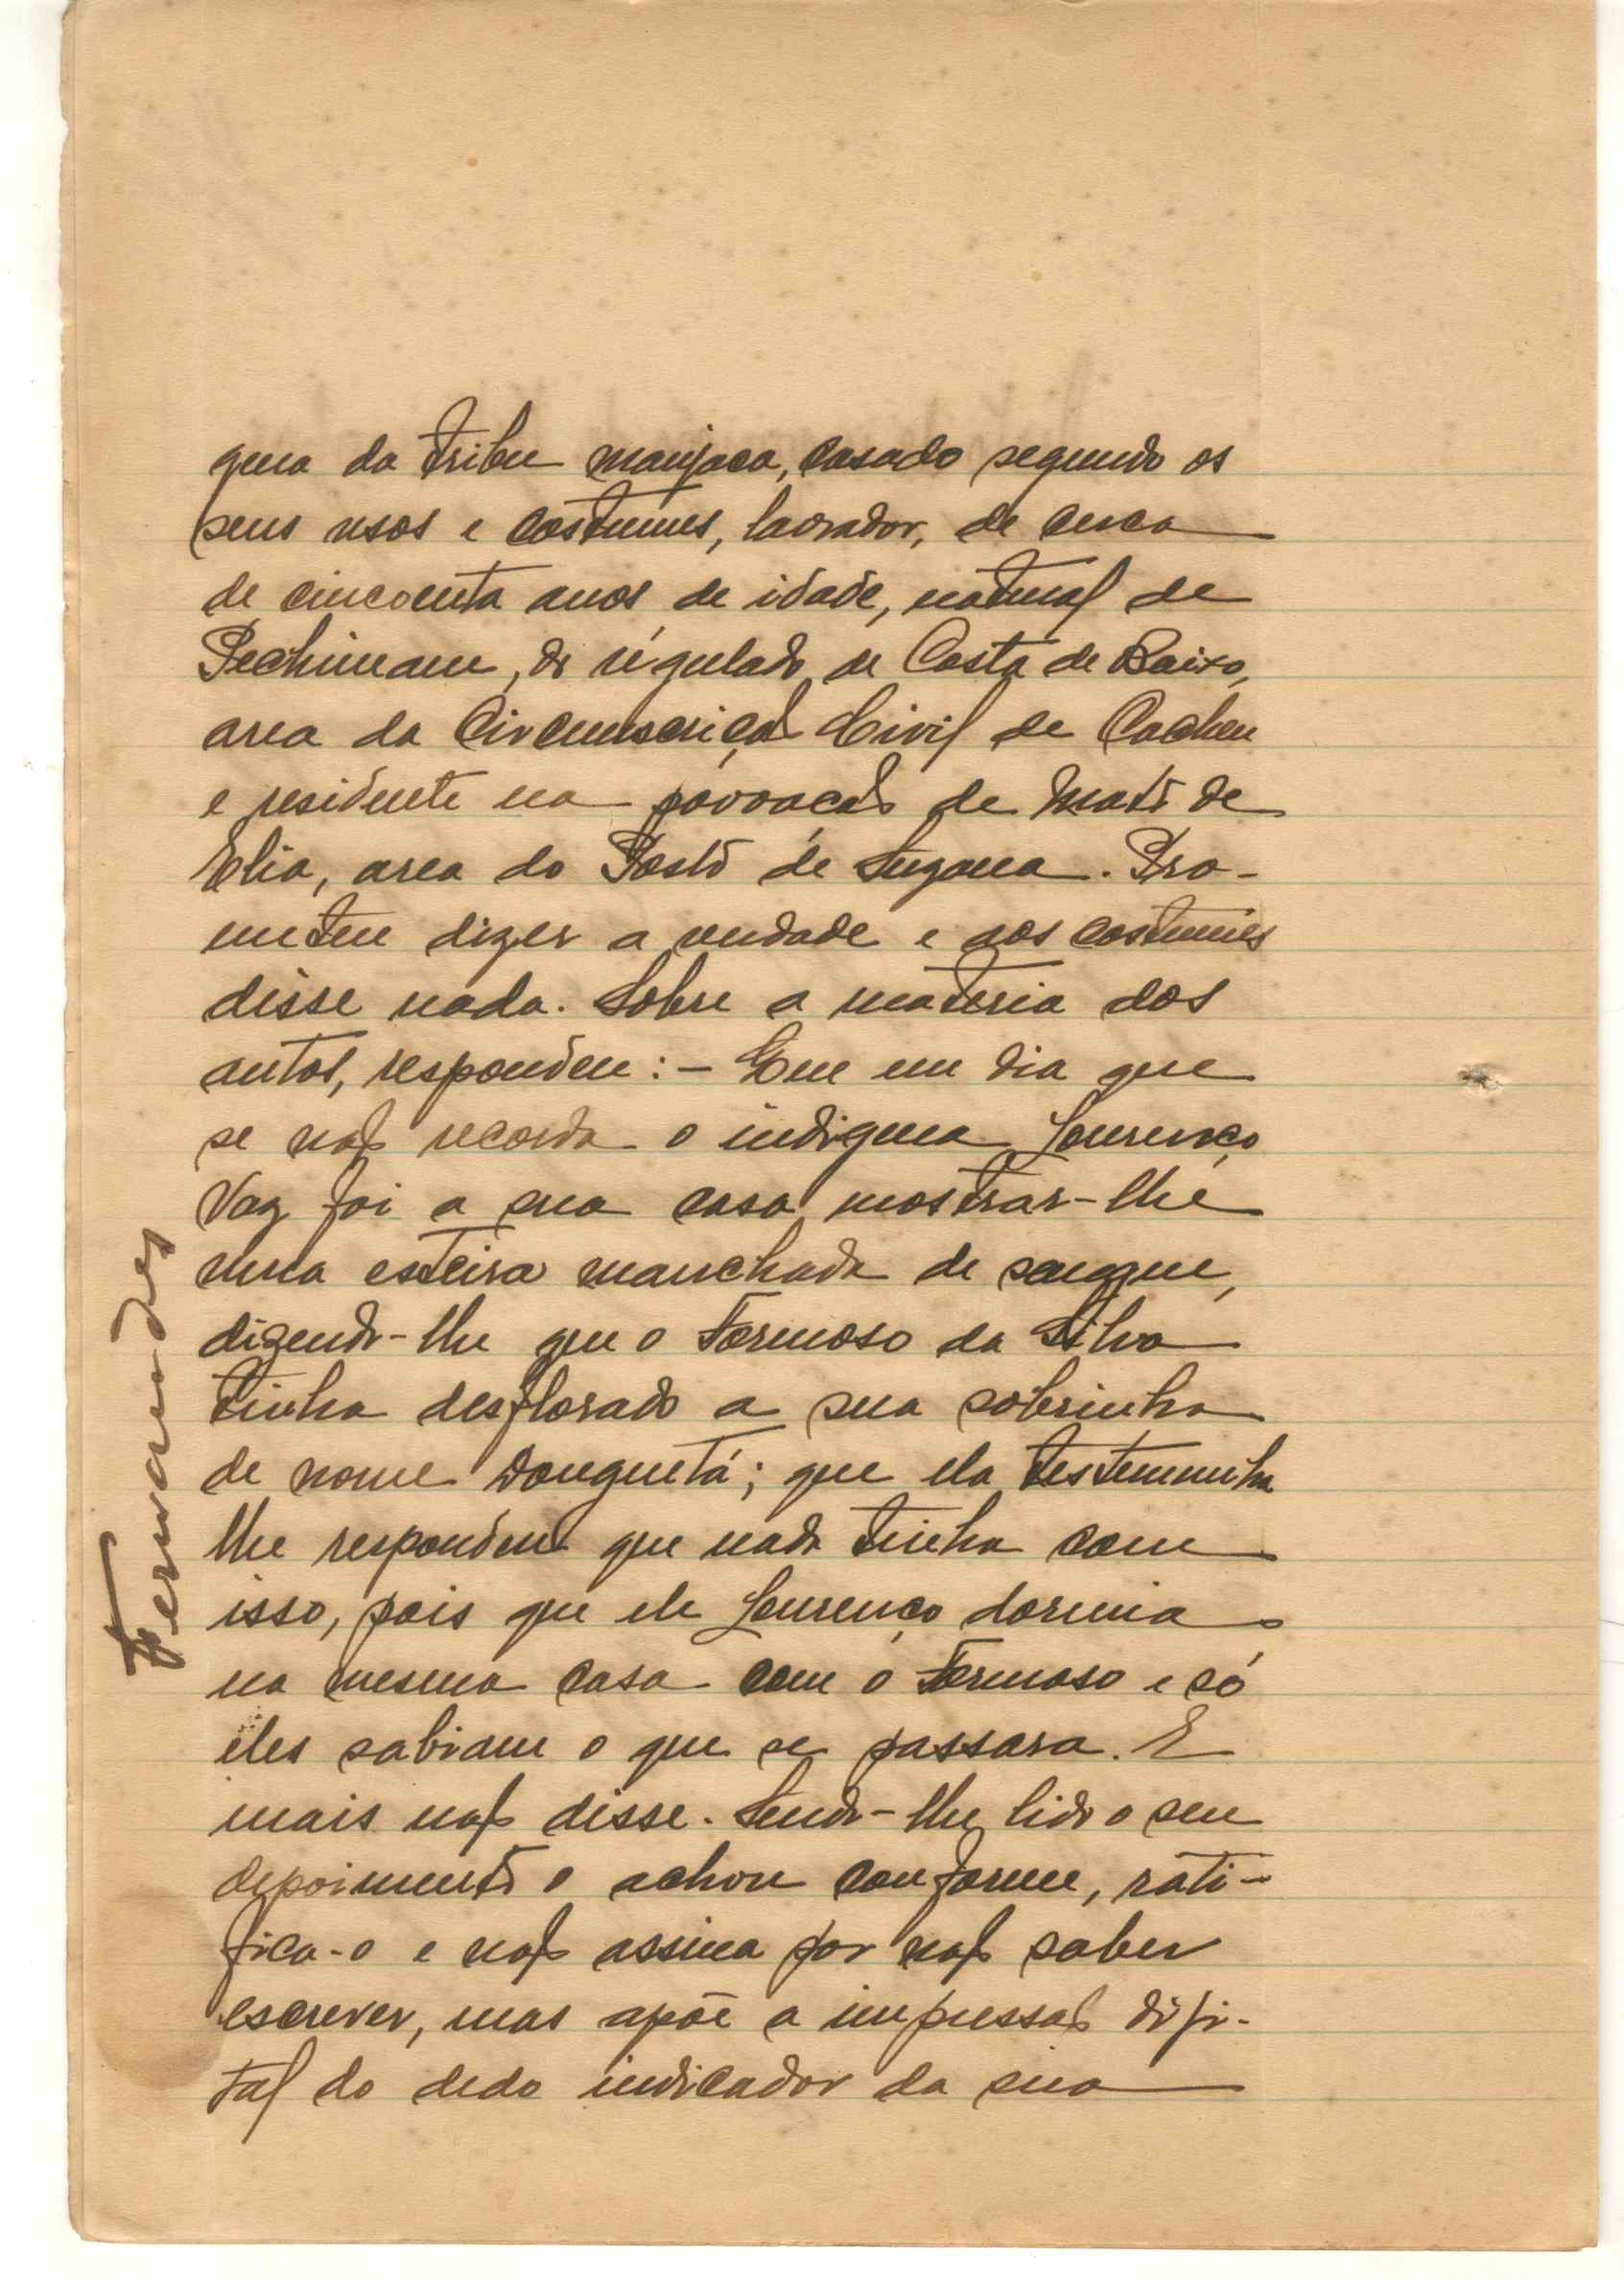 gena da tribu manjaca, casado segundo os
seus usos e costumes, lavrador, de cerca
de cincoenta anos de idade, natural de
Pechimam, do régulado de Costa de Baixo,
area da Circunscrição Civil de Cacheu
e residente na povoação de Mato de
Elia, area do Posto de Suzana. Pro-
meteu dizer a verdade e aos costumes
disse nada. Sobre a materia dos
autos, respondeu: - Que um dia que
se não recorda o indigena Lourenço
Vaz foi a sua casa mostrar-lhe
uma esteira manchada de sangue,
dizendo-lhe que o Formoso da Silva
tinha desflorado a sua sobrinha
de nome Donguetá; que ela testemunha
lhe respondeu que nada tinha com
isso, pois que ele Lourenço dormia
na mesma casa com o Formoso e só
eles sabiam o que se passara. E
mais não disse. Sendo-lhe lido o seu
depoimento o achou conforme, rati-
fica-o e não assina por não saber
escrever, mas apõe a impressão digi-
tal do dedo indicador da sua
Fernandes